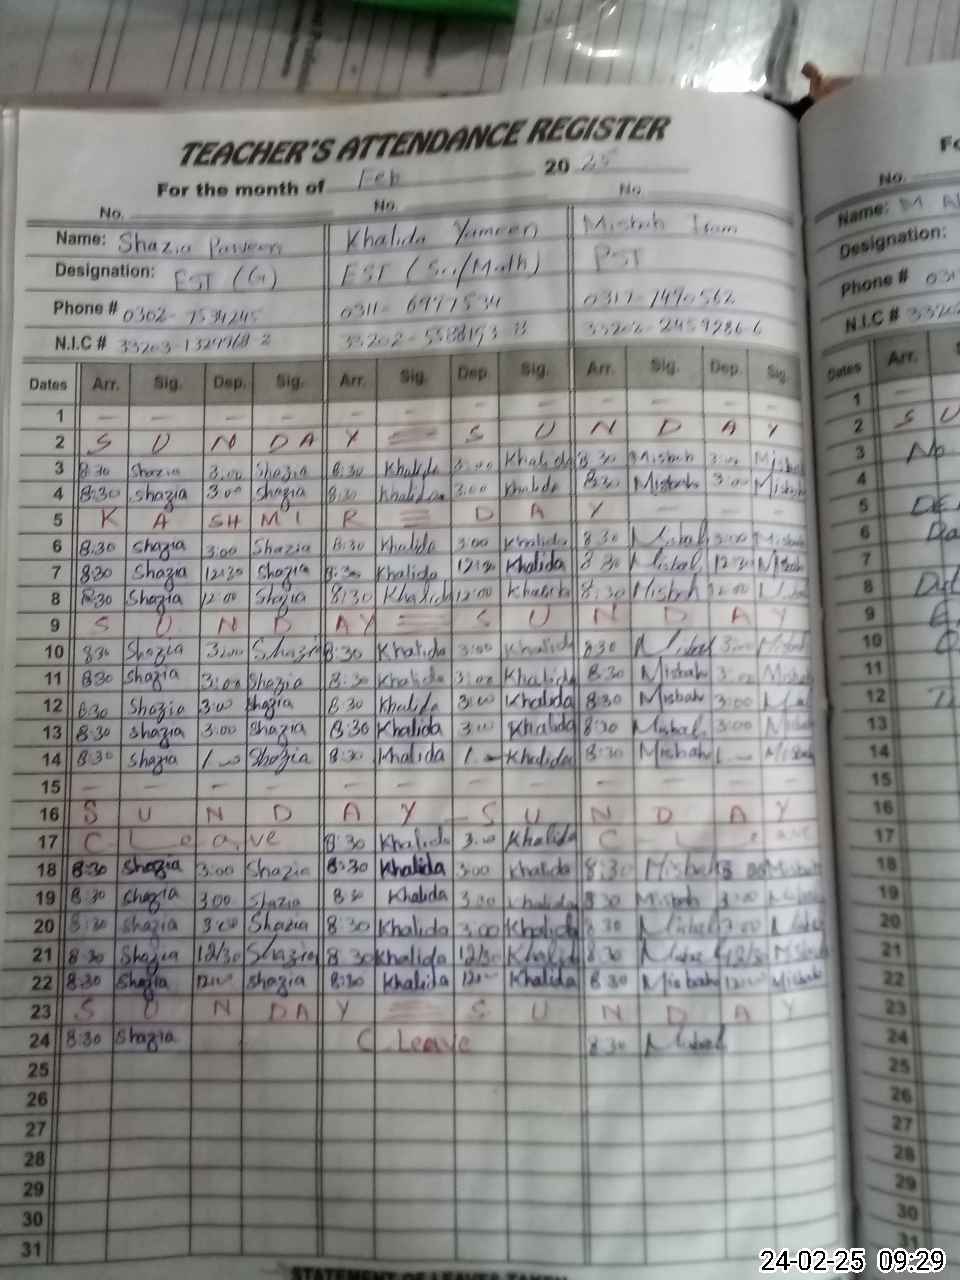 TEACHER'S ATTENDANCE REGISTER
For the month of Feb 20 25
No. No. No.
Name: Shazia Parveen Khalida Yameen Misbah
Designation: EST (G) EST (Sci/Math) PST
Phone #
N.I.C #
Dates Arr. Sig. Dep. Sig. Arr. Sig. Dep. Sig. Arr. Sig. Dep. Sig.
1 — — — — — — — — — —
2 S U N D A Y S U N D A Y
3 8:30 Shazia 3:00 Shazia 8:30 Khalida 3:00 Khalida 8:30 Misbah 3:00 Misbah
4 8:30 Shazia 3:00 Shazia 8:30 Khalida 3:00 Khalida 8:30 Misbah 3:00 Misbah
5 K A SH M I R D A Y — — —
6 8:30 Shazia 3:00 Shazia 8:30 Khalida 3:00 Khalida 8:30 Misbah 3:00 Misbah
7 8:30 Shazia 12:30 Shazia 8:30 Khalida 12:30 Khalida 8:30 Misbah 12:30 Misbah
8 8:30 Shazia 12:00 Shazia 8:30 Khalida 12:00 Khalida 8:30 Misbah 12:00
9 S U N D A Y S U N D A Y
10 8:30 Shazia 3:00 Shazia 8:30 Khalida 3:00 Khalida 8:30 Misbah 3:00 Misbah
11 8:30 Shazia 3:00 Shazia 8:30 Khalida 3:00 Khalida 8:30 Misbah 3:00 Misbah
12 8:30 Shazia 3:00 Shazia 8:30 Khalida 3:00 Khalida 8:30 Misbah 3:00
13 8:30 Shazia 3:00 Shazia 8:30 Khalida 3:00 Khalida 8:30 Misbah 3:00 Misbah
14 8:30 Shazia 1 — Shazia 8:30 Khalida 1 — Khalida 8:30 Misbah 1 — Misbah
15 — — — — — — — — — — — —
16 S U N D A Y S U N D A Y
17 C Leave 8:30 Khalida 3:00 Khalida C Leave
18 8:30 Shazia 3:00 Shazia 8:30 Khalida 3:00 Khalida 8:30 Misbah 3:00 Misbah
19 8:30 Shazia 3:00 Shazia 8:30 Khalida 3:00 Khalida 8:30 Misbah 3:00 Misbah
20 8:30 Shazia 3:00 Shazia 8:30 Khalida 3:00 Khalida 8:30 Misbah 3:00
21 8:30 Shazia 12/30 Shazia 8:30 Khalida 12/30 Khalida 8:30 12/30 Misbah
22 8:30 Shazia 12:00 Shazia 8:30 Khalida 12:00 Khalida 8:30 Misbah 12:00 Misbah
23 S U N D A Y S U N D A Y
24 8:30 Shazia C.Leave 8:30 Misbah
25
26
27
28
29
30
31
STATEMENT OF LEAVES TAKEN
No.
Name: M
Designation:
Phone #
N.I.C #
Dates Arr.
1 —
2 S U
3 No
4
5
6
7
8
9
10
11
12
13
14
15
16
17
18
19
20
21
22
23
24
25
26
27
28
29
30
31
24-02-25 09:29